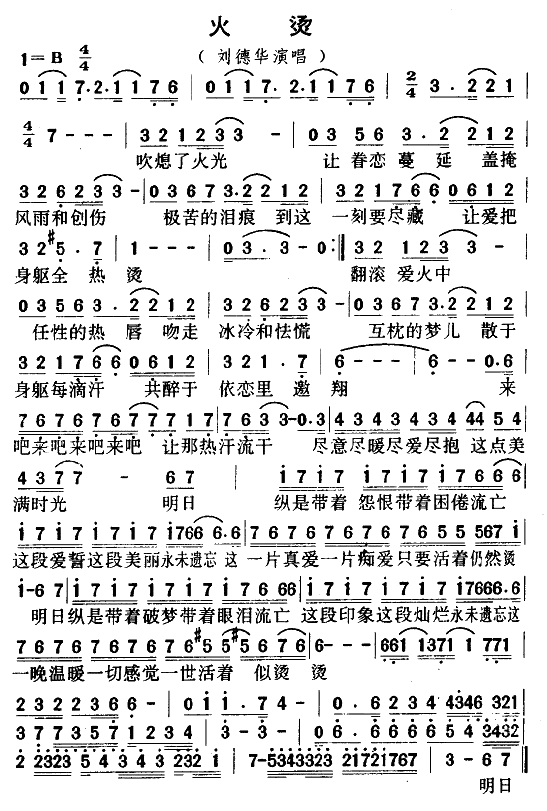 火 烫
1=B 4/4 （刘德华演唱）
0 1 1 7. 2. 1 1 7 6 | 0 1 1 7. 2. 1 1 7 6 | 2/4 3. 2 2 1 |
4/4 7 - - - | 3 2 1 2 3 3 - | 0 3 5 6 3. 2 2 1 2
吹熄了火光 让 眷恋 蔓 延 盖掩
3 2 6 2 3 3 - | 0 3 6 7 3. 2 2 1 2 | 3 2 1 7 6 6 0 6 1 2
风雨和创伤 极苦的泪痕 到这 一刻要尽藏 让爱把
3 2 #5. 7 | 1 - - - | 0 3. 3 - 0 :| 3 2 1 2 3 3 -
身躯全 热 烫 翻滚 爱火中
0 3 5 6 3. 2 2 1 2 | 3 2 6 2 3 3 - | 0 3 6 7 3. 2 2 1 2
任性的热 唇 吻走 冰冷和怯慌 互枕的梦儿 散于
3 2 1 7 6 6 0 6 1 2 | 3 2 1. 7 | 6 - - - | 6 - - 0. 6
身躯每滴汗 共醉于 依恋里 遨 翔 来
7 6 7 6 7 6 7 7 7 1 7 | 7 6 3 3 - 0. 3 | 4 3 4 3 4 3 4 3 4 4 5 4
吧来吧来吧来吧 让那热汗流干 尽意尽暖尽爱尽抱 这点美
4 3 7 7 - 6 7 | 1 7 1 7 1 7 1 7 1 7 6 7
满时光 明日 纵是带着 怨恨带着困倦流亡
1 7 1 7 1 7 1 7 1 7 6 6 6. 6 | 7 6 7 6 7 6 7 6 7 6 5 5 5 6 7 1
这段爱誓这段美丽永未遗忘 这 一片真爱一片痴爱只要活着仍然烫
1 - 6 7 | 1 7 1 7 1 7 1 7 1 7 6 6 | 1 7 1 7 1 7 1 7 1 7 6 6 6. 6
明日纵是带着破梦带着眼泪流亡 这段印象这段灿烂永未遗忘这
7 6 7 6 7 6 7 6 7 6 #5 5 #5 6 7 6 | 6 - - - | 6 6 1 1 3 7 1 1 7 7 1
一晚温暖一切感觉一世活着 似烫 烫
2 3 2 2 3 6 6 - | 0 1 1. 7 4 - | 0. 6 2 3 4 4 3 4 6 3 2 1
3 7 7 3 5 7 1 2 3 4 | 3 - 3 - | 0. 2 3 4 6 5 3 4 3 2
2 2 3 2 3 5 4 3 4 3 2 3 2 1 | 7 - 5 3 4 3 3 2 3 2 1 7 2 1 7 6 7 | 3 - 6 7 :|
明日